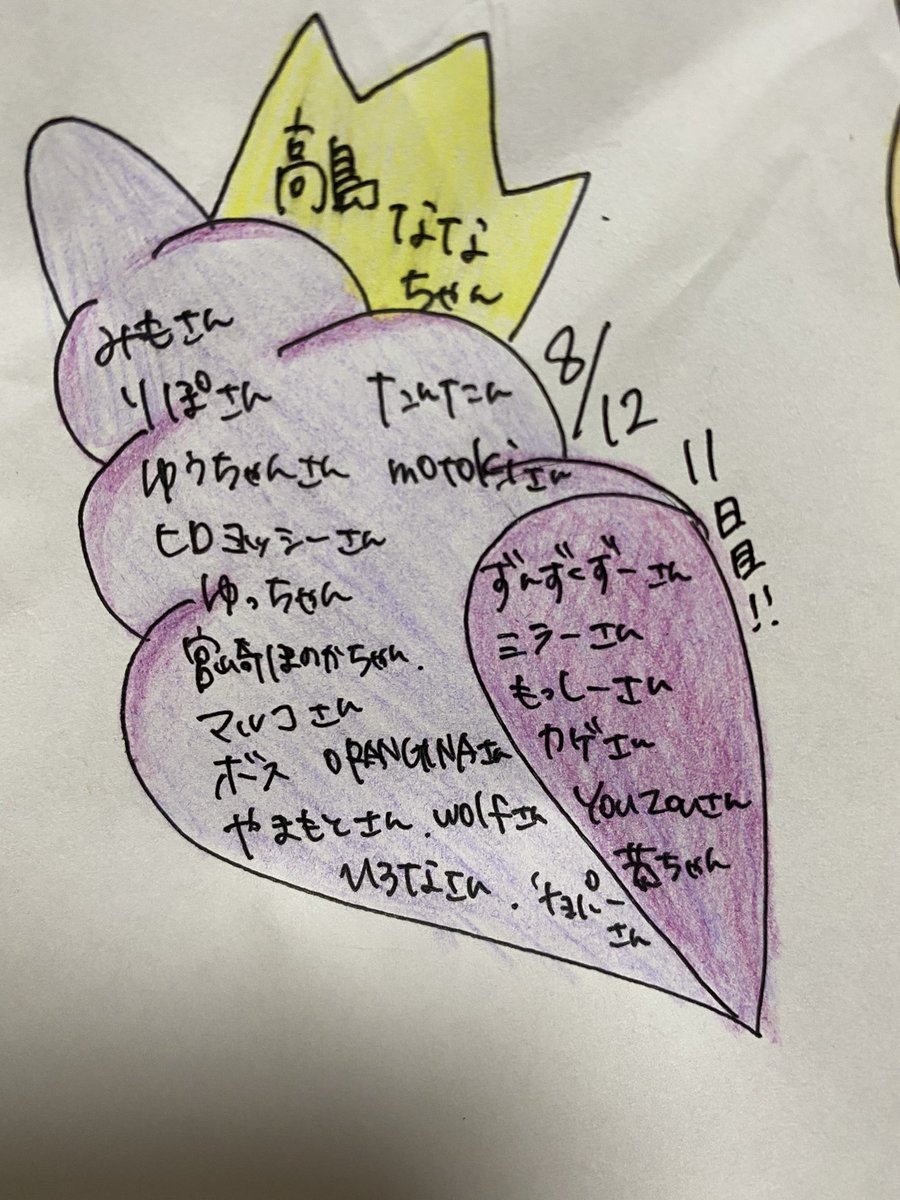 高島
ななな
ちゃん
8/12
11日目!!
みもさん
りぽさん
ゆうちゃんさん motokiさん
ヒロヨッシーさん
ゆっちゃん
宮崎ほのかちゃん.
マルコさん
ボス ORANGINAさん
やまもとさん. wolfさん
ひろなさん.
さん
ずんずくずーさん
ミラーさん
もっしーさん
カゲさん
Youzouさん
ちゃん